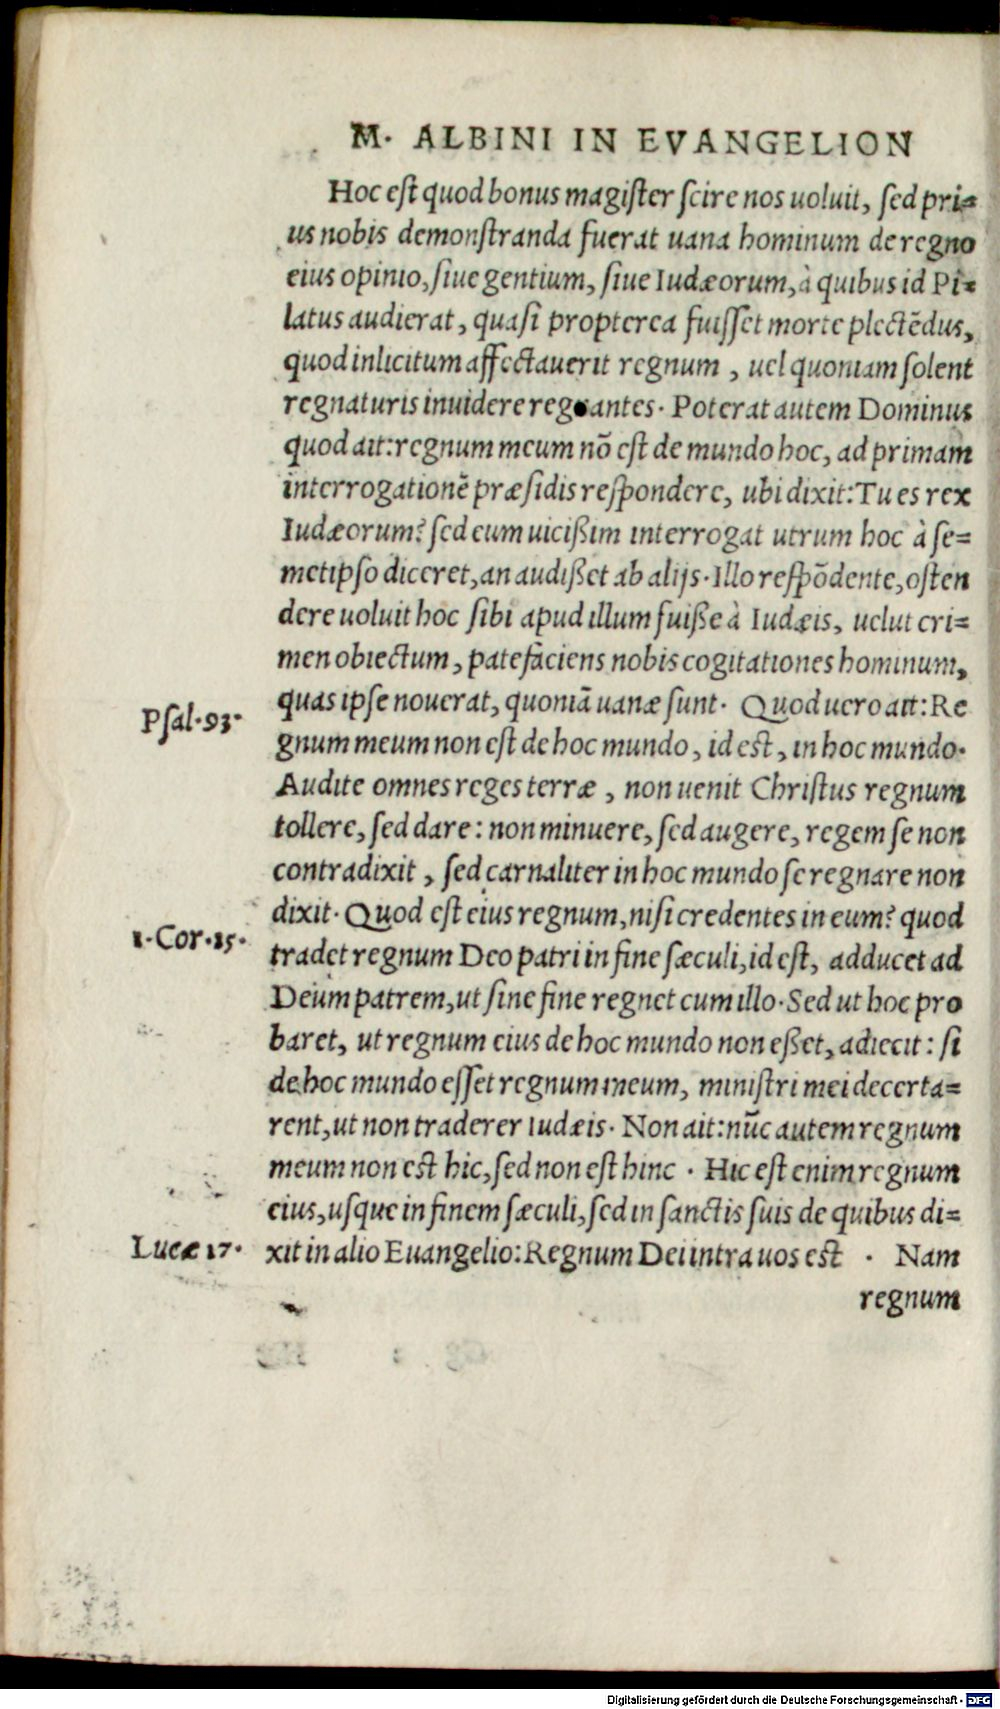 M. ALBINI IN EVANGELION
Hoc est quod bonus magister scire nos uoluit, sed pri=
us nobis demonstranda fuerat uana hominum de regno
eius opinio, siue gentium, siue Iudæorum, à quibus id Pi=
latus audierat, quasi propterea fuisset morte plectēdus,
quod inlicitum affectauerit regnum, uel quoniam solent
regnaturis inuidere regnantes. Poterat autem Dominus
quod ait: regnum meum nō est de mundo hoc, ad primam
interrogationē præsidis respondere, ubi dixit: Tu es rex
Iudæorum? sed eum uicißim interrogat utrum hoc à se=
metipso diceret, an audißet ab alijs. Illo respōdente, osten
dere uoluit hoc sibi apud illum fuiße à Iudæis, uelut cri=
men obiectum, patefaciens nobis cogitationes hominum,
Psal.93.
quas ipse nouerat, quoniā uanæ sunt. Quod uero ait: Re
gnum meum non est de hoc mundo, id est, in hoc mundo.
Audite omnes reges terræ, non uenit Christus regnum
tollere, sed dare: non minuere, sed augere, regem se non
contradixit, sed carnaliter in hoc mundo se regnare non
dixit. Quod est eius regnum, nisi credentes in eum? quod
1.Cor.15.
tradet regnum Deo patri in fine sæculi, id est, adducet ad
Deum patrem, ut sine fine regnet cum illo. Sed ut hoc pro
baret, ut regnum eius de hoc mundo non eßet, adiecit: si
de hoc mundo esset regnum meum, ministri mei decerta=
rent, ut non traderer Iudæis. Non ait: nūc autem regnum
meum non est hic, sed non est hinc. Hic est enim regnum
eius, usque in finem sæculi, sed in sanctis suis de quibus di=
Lucæ 17.
xit in alio Euangelio: Regnum Dei intra uos est. Nam
regnum
Digitalisierung gefördert durch die Deutsche Forschungsgemeinschaft - DFG